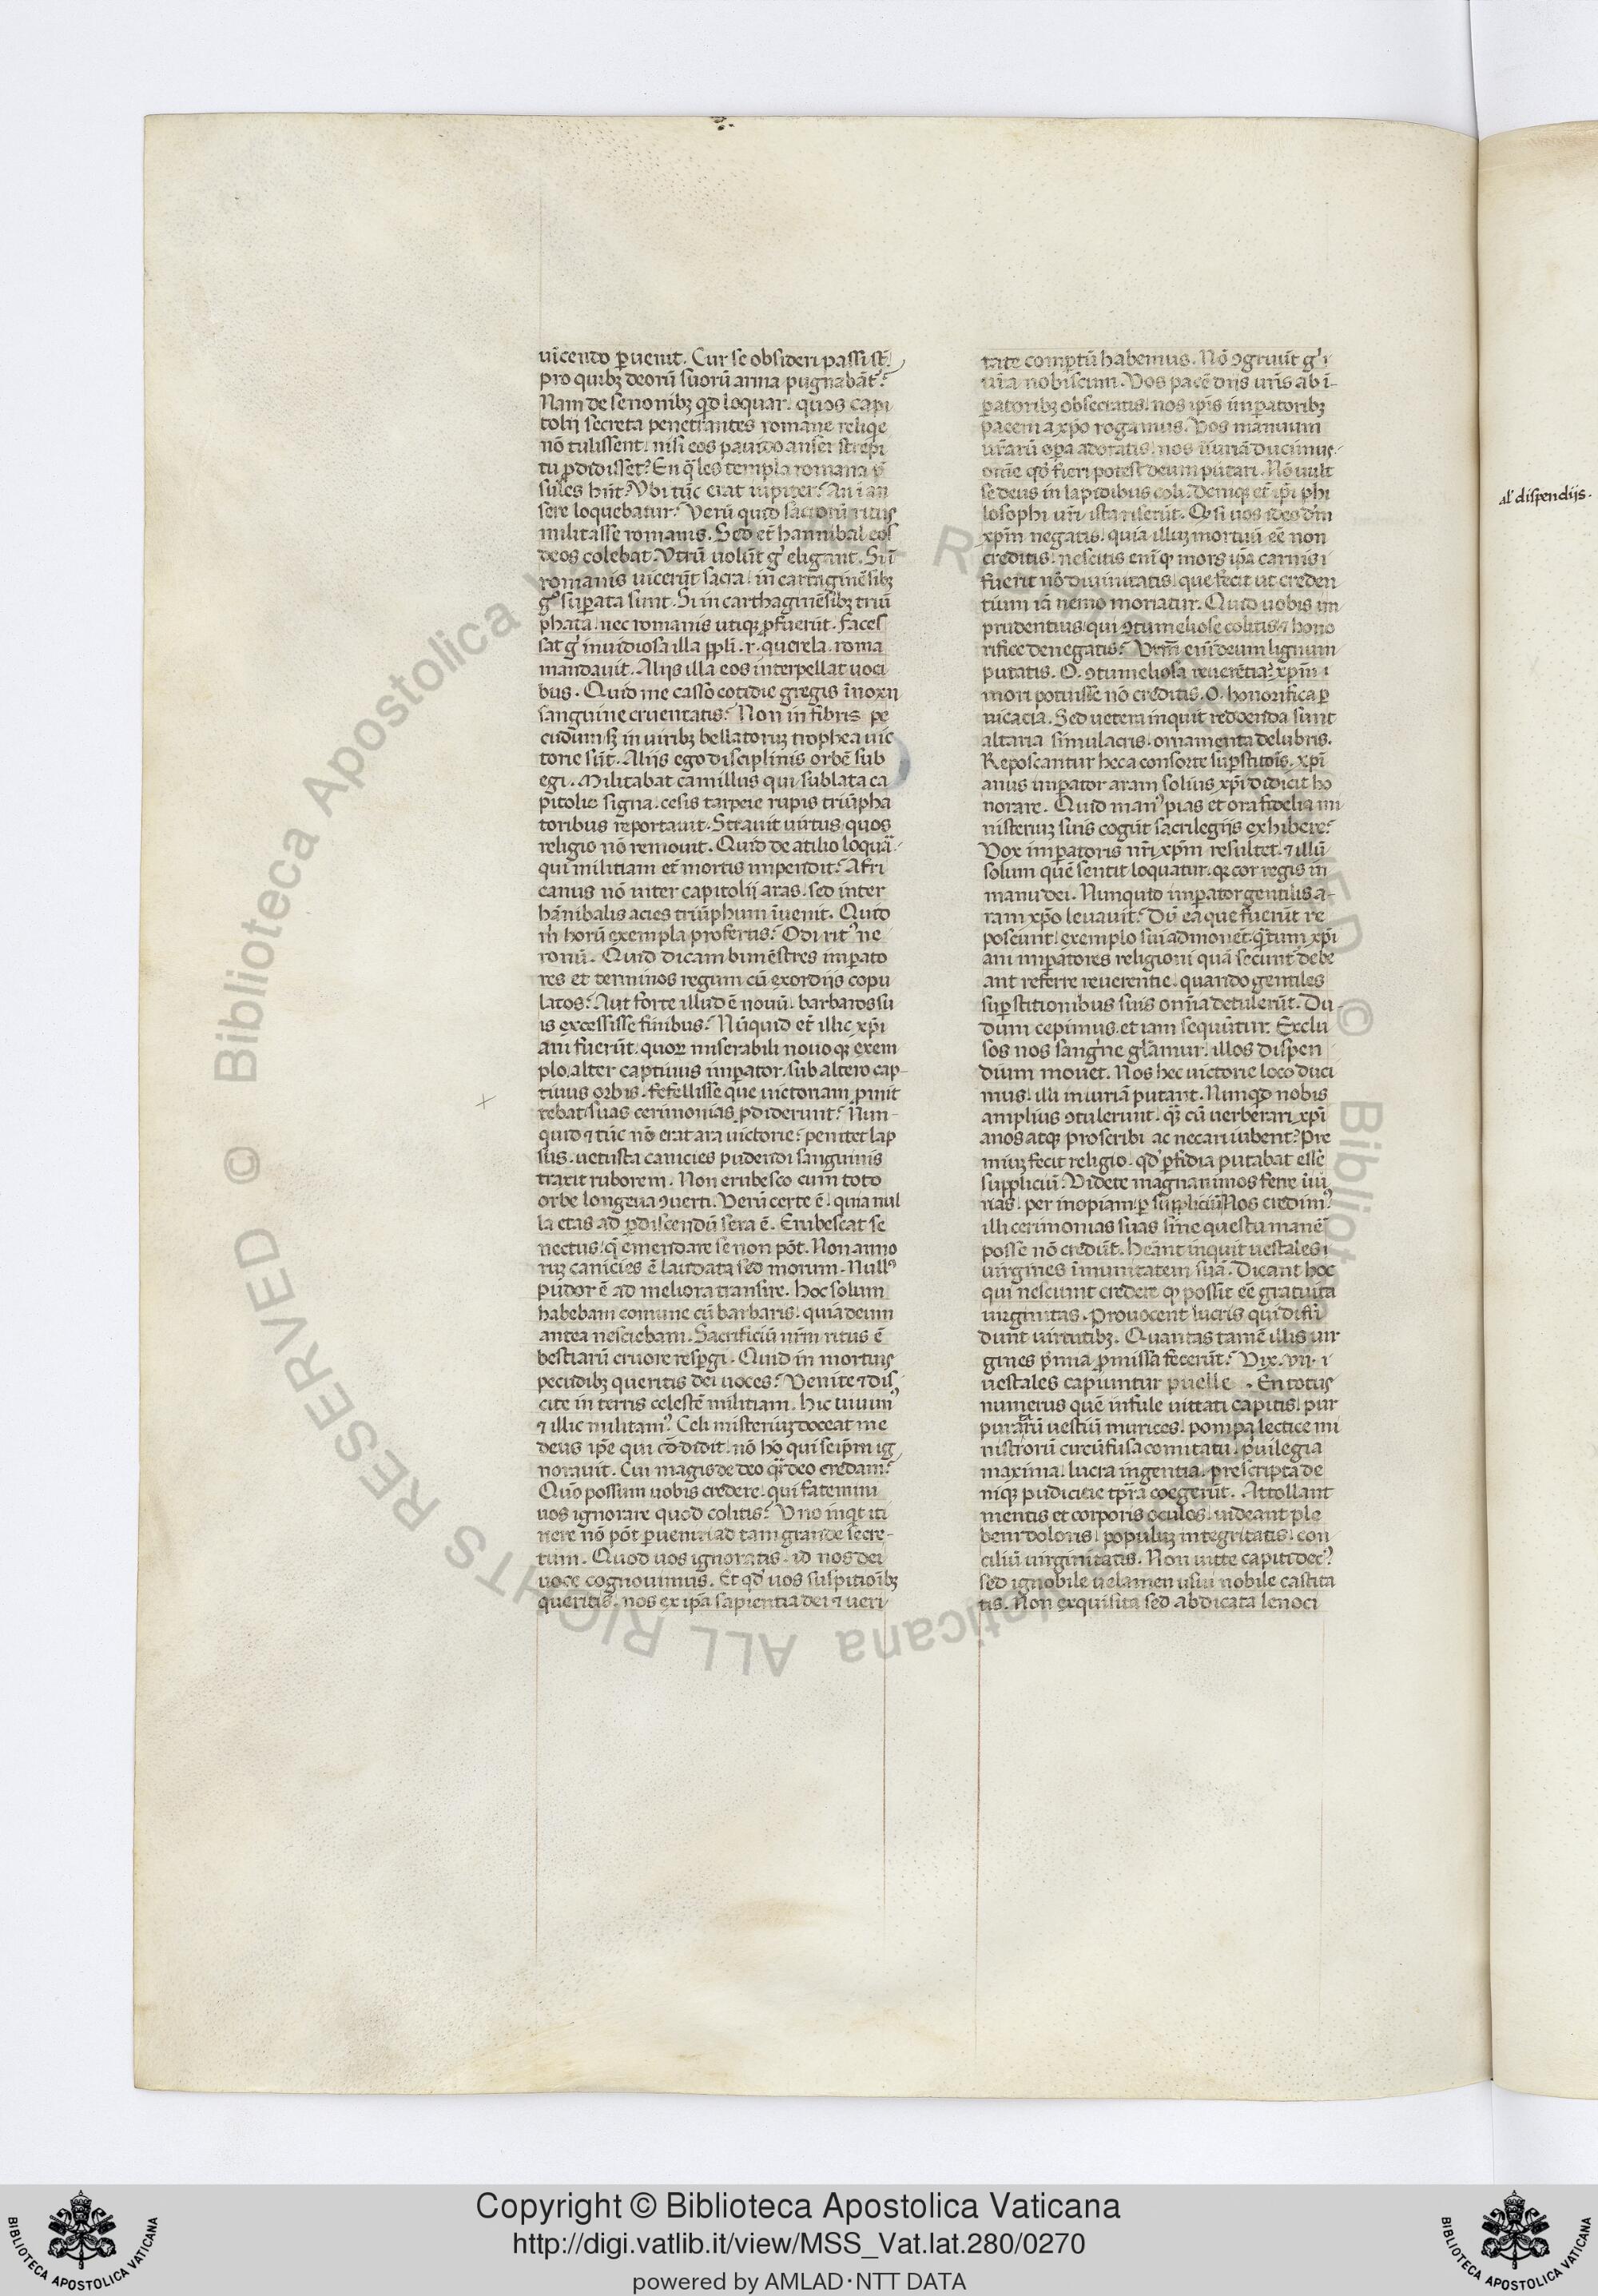 uīcendo ꝑuenit. Cur se obsideri passi st̄
pro quibꝫ deorū suorū arma pugnabāt?
Nam de senonibꝫ qd loquar. quos capi
tolij secreta penetrantes romane reliqe
nō tulissent. nisi eos pauido anser strepi
tu ꝓdidisset? En q̄les templa romana p̄
sules hn̄t? Vbi tūc erat iupiter? An ī an
sere loquebatur? Verū quid sacrorū ritus
militasse romanis. Sed et hannibal eos
deos colebat. Vtrū volūt g̊ eligant. Si ī
romanis vicerūt sacra. in cartaginēsibꝫ
g̊ suꝑata sunt. Si in carthaginēsibꝫ triū
phata. nec romanis utiqꝫ ꝓfuerūt. Faces
sat g̊ inuidiosa illa ppli. r. querela. roma
mandauit. Alijs illa eos interpellat uoci
bus. Quid me casso cotidie gregis īnoxij
sanguine cruentatis? Non in fibris pe
cudum sꝫ in uiribꝫ bellatoruꝫ trophea uic
torie sūt. Alijs ego disciplinis orbē sub
egi. Militabat camillus qui sublata ca
pitolio signa. cesis tarpeie rupis triūpha
toribus reportauit. Strauit uirtus quos
religio nō remouit. Quid de atilio loquā
qui militiam et mortis impendit? Afri
canus nō inter capitolij aras. sed inter
hānibalis acies triūphum īuenit. Quid
m̄ horū exempla profertis? Odi ritꝰ ne
ronū. Quid dicam bimēstres imꝑato
res et terminos regum cū exordijs copu
latos? Aut forte illud ē nouū. barbaros su
is excessisse finibus? Nūquid et illic xp̄i
ani fuerūt. quoꝝ miserabili nouoqꝫ exem
plo. alter captiuus imꝑator. sub altero cap-
tiuus orbis. fefellisse que uictoriam ꝓmit
tebāt suas cerimonias ꝓdiderunt? Nun-
quid ⁊ tūc nō erat ara uictorie? penitet lap
sus. uetusta canicies pudendi sanguinis
traxit ruborem. Non erubesco cum toto
orbe longeua ꝯuerti. Verū certe ē. quia nul
la etas ad ꝑdiscendū sera ē. Erubescat se
nectus. q̄ emendare se non pōt. Non anno
ruꝫ canicies ē laudata sed morum. Nullꝰ
pudor ē ad meliora transire. Hoc solum
habebam comune cū barbaris. quia deum
antea nesciebam. Sacrificiū nr̄m ritus ē
bestiarū cruore resꝑgi. Quid in mortuis
pecudibꝫ queritis dei uoces? Venite ⁊ dis
cite in terris celestē militiam. hic uiuimꝰ
⁊ illic militamꝰ. Celi misteriuꝫ doceat me
deus ip̄e qui cōdidit. nō hō qui seip̄m ig
norauit. Cui magis de deo qꝫ deo credam?
Quo possum uobis credere. qui fatemini
uos ignorare quod colitis? Vno inqt iti
nere nō pōt ꝑueniri ad tam grande secre-
tum. Quod uos ignoratis. id nos dei
uoce cognouimus. Et qd uos suspitioībꝫ
queritis. nos ex ip̄a sapientia dei ⁊ veri
tate comptū habemus. Nō ꝯgruūt g̊
ur̄a nobiscum. Vos pacē dijs ur̄is ab ī-
ꝑatoribꝫ obsecratis. nos ip̄is imꝑatoribꝫ
pacem a xp̄o rogamus. Vos manuum
ur̄arū oꝑa adoratis. nos iniuriā ducimus
om̄e qd fieri potest deum putari. Nō uult
se deus in lapidibus coli. Deniqꝫ et ip̄i phi
losophi ur̄i ista riserūt. Qꝫ si uos ideo dm̄
xp̄m negatis. quia illuꝫ mortuū eē non
creditis. nescitis eni qꝫ mors ip̄a carnis
fuerit nō diuinitatis. que fecit ut creden
tium iā nemo moriatur. Quid uobis im
prudentius. qui ꝯtumeliose colitis. ⁊ hono
rifice denegatis? Vr̄m eni deum lignum
putatis. O. ꝯtumeliosa reuerētia? xp̄m
mori potuisse nō creditis. O. honorifica ꝑ
uicacia. Sed uetera inquit reddenda sunt
altaria simulacris. ornamenta delubris.
Reposcantur hec a consorte suꝑstitiois. xp̄i
anus imꝑator aram solius xp̄i didicit ho
norare. Quid manꝰ pias et ora fidelia mi
nisteriuꝫ suis cogūt sacrilegijs exhibere?
Vox imꝑatoris nr̄i xp̄m resultet. ⁊ illū
solum quē sentit loquatur. qꝫ cor regis in
manu dei. Nunquid imꝑator gentilis a-
ram xp̄o leuauit? Dū ea que fuerūt re
poscunt. exemplo sui admonēt. q̄ntum xp̄i
ani imꝑatores religioni quā secunt debe
ant referre reuerentie. quando gentiles
suꝑstitionibus suis omīa detulerūt. Du-
dum cepimus. et iam sequūtur. Exclu
sos nos sangne glāmur. illos dispen
dium mouet. Nos hec uictorie loco duci
mus. illi iniuriā putant. Nunqd nobis
amplius ꝯtulerunt. qꝫ cū uerberari xp̄i
anos atqꝫ proscribi ac necari iubent? Pre
miuꝫ fecit religio. qd ꝑfidia putabat esse
suppliciū. Videte magnanimos ferre iīu
rias. per inopiam. ꝑ suppliciū Nos credimꝰ
illi cerimonias suas sine questu manē
posse nō credūt. Heānt inquit uestales
uirgines īmunitatem suā. Dicant hoc
qui nesciunt credere qꝫ possīt eē gratuita
uirginitas. Prouocent lucris qui diffi
dunt uirtutibꝫ. Quantas tamē illis uir
gines p̄mia ꝓmissa fecerūt? Vix. vij.
uestales capiuntur puelle. En totus
numerus quē infule uittati capitis. pur
purarū uestiū murices. pompa lectice mi
nistrorū circūfusa comitatu. ꝑuilegia
maxima. lucra ingentia. prescripta de
niqꝫ pudicitie tꝑra coegerūt. Attollant
mentis et corporis oculos. uideant ple
bem doloris. populuꝫ integritatis. con
ciliū uirginitatis. Non uitte capiti decꝰ
sed ignobile uelamen usui nobile castita
tis. Non exquisita sed abdicata lenoci
al' dispendijs.
Copyright © Biblioteca Apostolica Vaticana
http://digi.vatlib.it/view/MSS_Vat.lat.280/0270
powered by AMLAD·NTT DATA
BIBLIOTECA APOSTOLICA VATICANA
BIBLIOTECA APOSTOLICA VATICANA